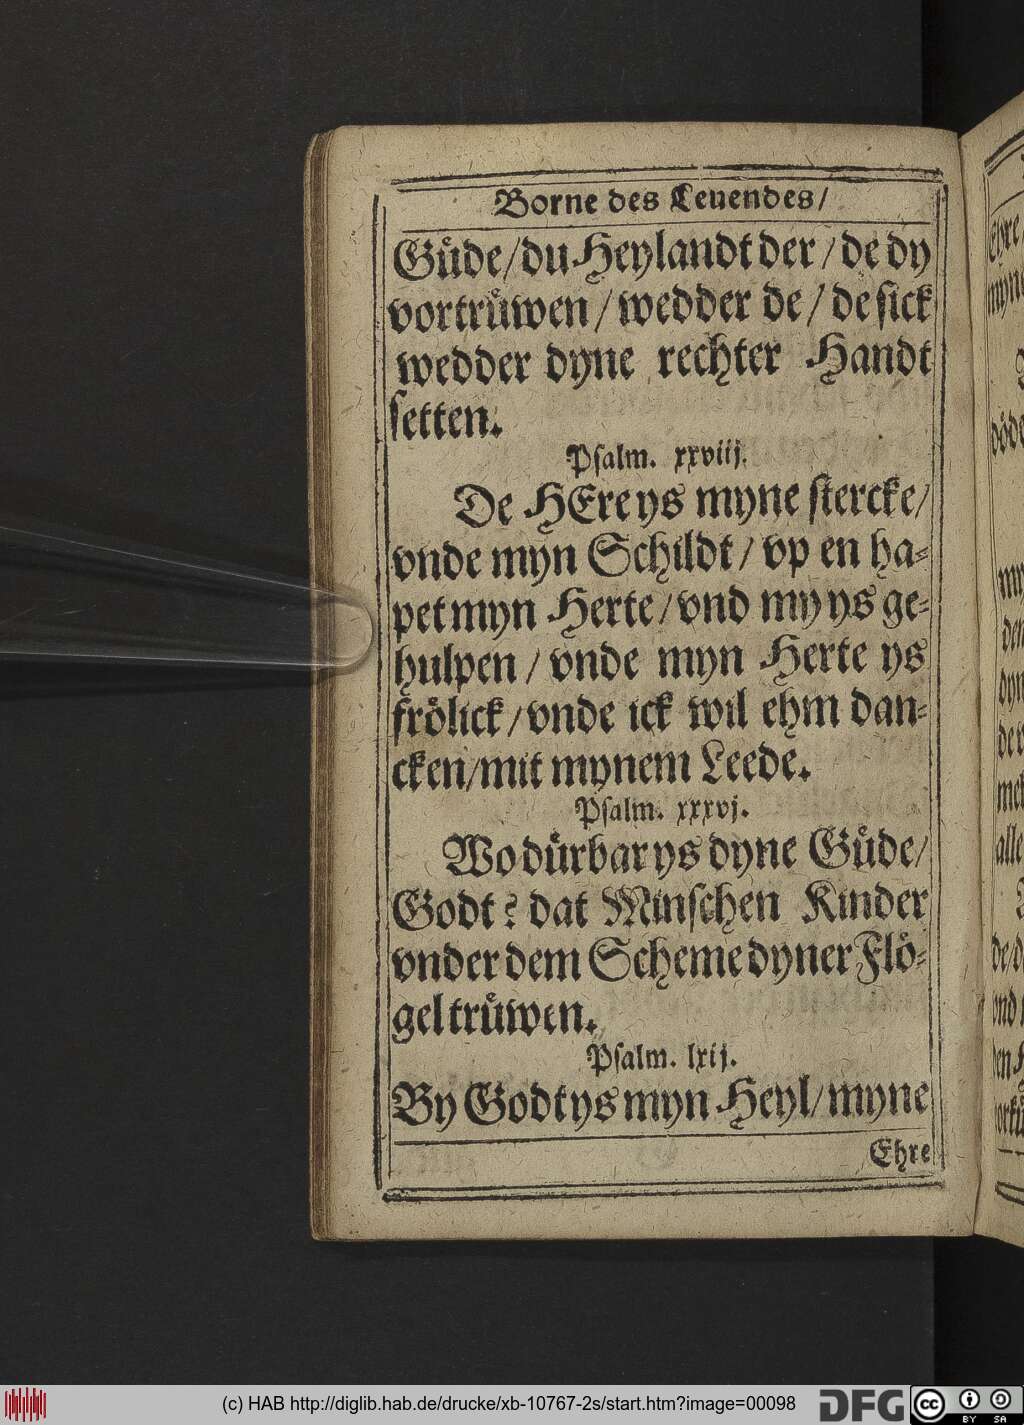 Borne des Leuendes/
Guͤde/du Heylandt der/de dy
vortruͤwen/wedder de/de sick
wedder dyne rechter Handt
setten.
Psalm. xxviij.
De HEre ys myne stercke/
vnde myn Schildt/vp en ha-
pet myn Herte/vnd my ys ge-
hulpen/vnde myn Herte ys
froͤlick/vnde ick wil ehm dan-
cken/mit mynem Leede.
Psalm. xxxvj.
Wo duͤrbar ys dyne Guͤde/
Godt? dat Minschen Kinder
vnder dem Scheme dyner Floͤ-
gel truͤwen.
Psalm. lxij.
By Godt ys myn Heyl/myne
Ehre
(c) HAB http://diglib.hab.de/drucke/xb-10767-2s/start.htm?image=00098
DFG
cc
BY SA